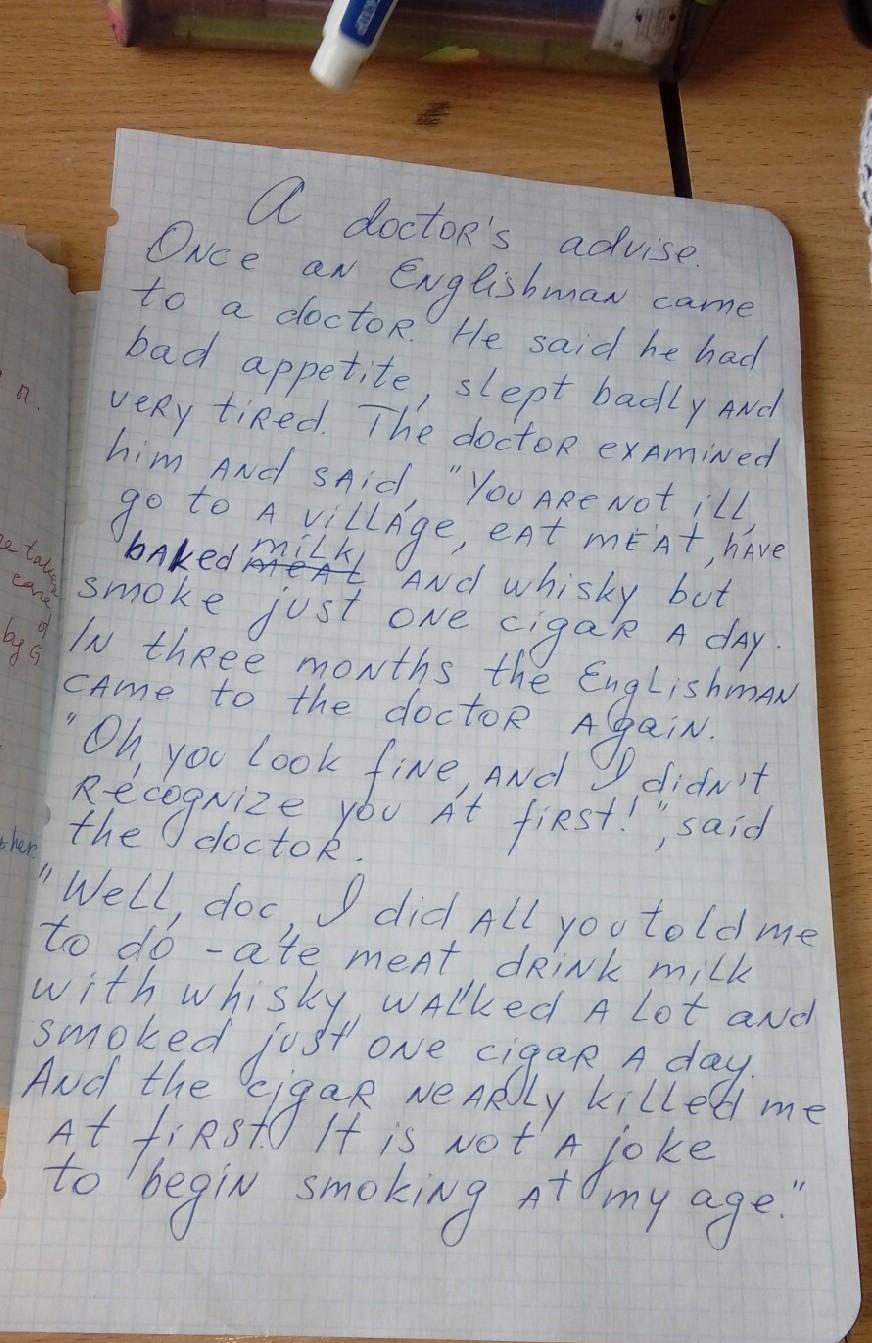 A doctor's advise.
Once an Englishman came
to a doctor. He said he had
bad appetite, slept badly and
very tired. The doctor examined
him and said, "You are not ill,
go to a village, eat meat, have
baked meat milk, and whisky but
smoke just one cigar a day.
In three months the Englishman
came to the doctor again.
"Oh, you look fine, and I didn't
recognize you at first!", said
the doctor.
"Well, doc, I did all you told me
to do - ate meat, drink milk
with whisky, walked a lot and
smoked just one cigar a day.
And the cigar nearly killed me
at first! It is not a joke
to begin smoking at my age."
n.
care
of
by a